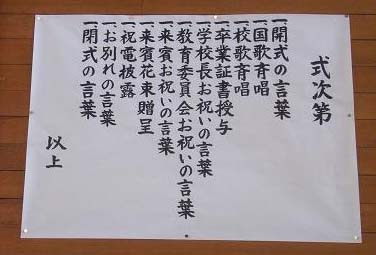 式次第
一開式の言葉
一国歌斉唱
一校歌斉唱
一卒業証書授与
一学校長お祝いの言葉
一教育委員会お祝いの言葉
一来賓お祝いの言葉
一来賓花束贈呈
一祝電披露
一お別れの言葉
一閉式の言葉
以上